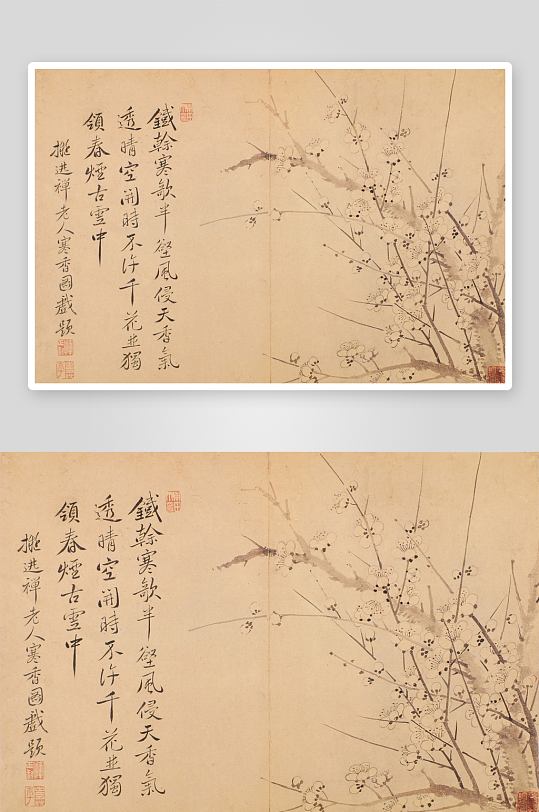 鐵榦寒欹半壑風侵天香氣
透晴空開時不許千花並獨
領春煙古雪中
擬逃禪老人寒香圖戲題
鐵榦寒欹半壑風侵天香氣
透晴空開時不許千花並獨
領春煙古雪中
擬逃禪老人寒香圖戲題